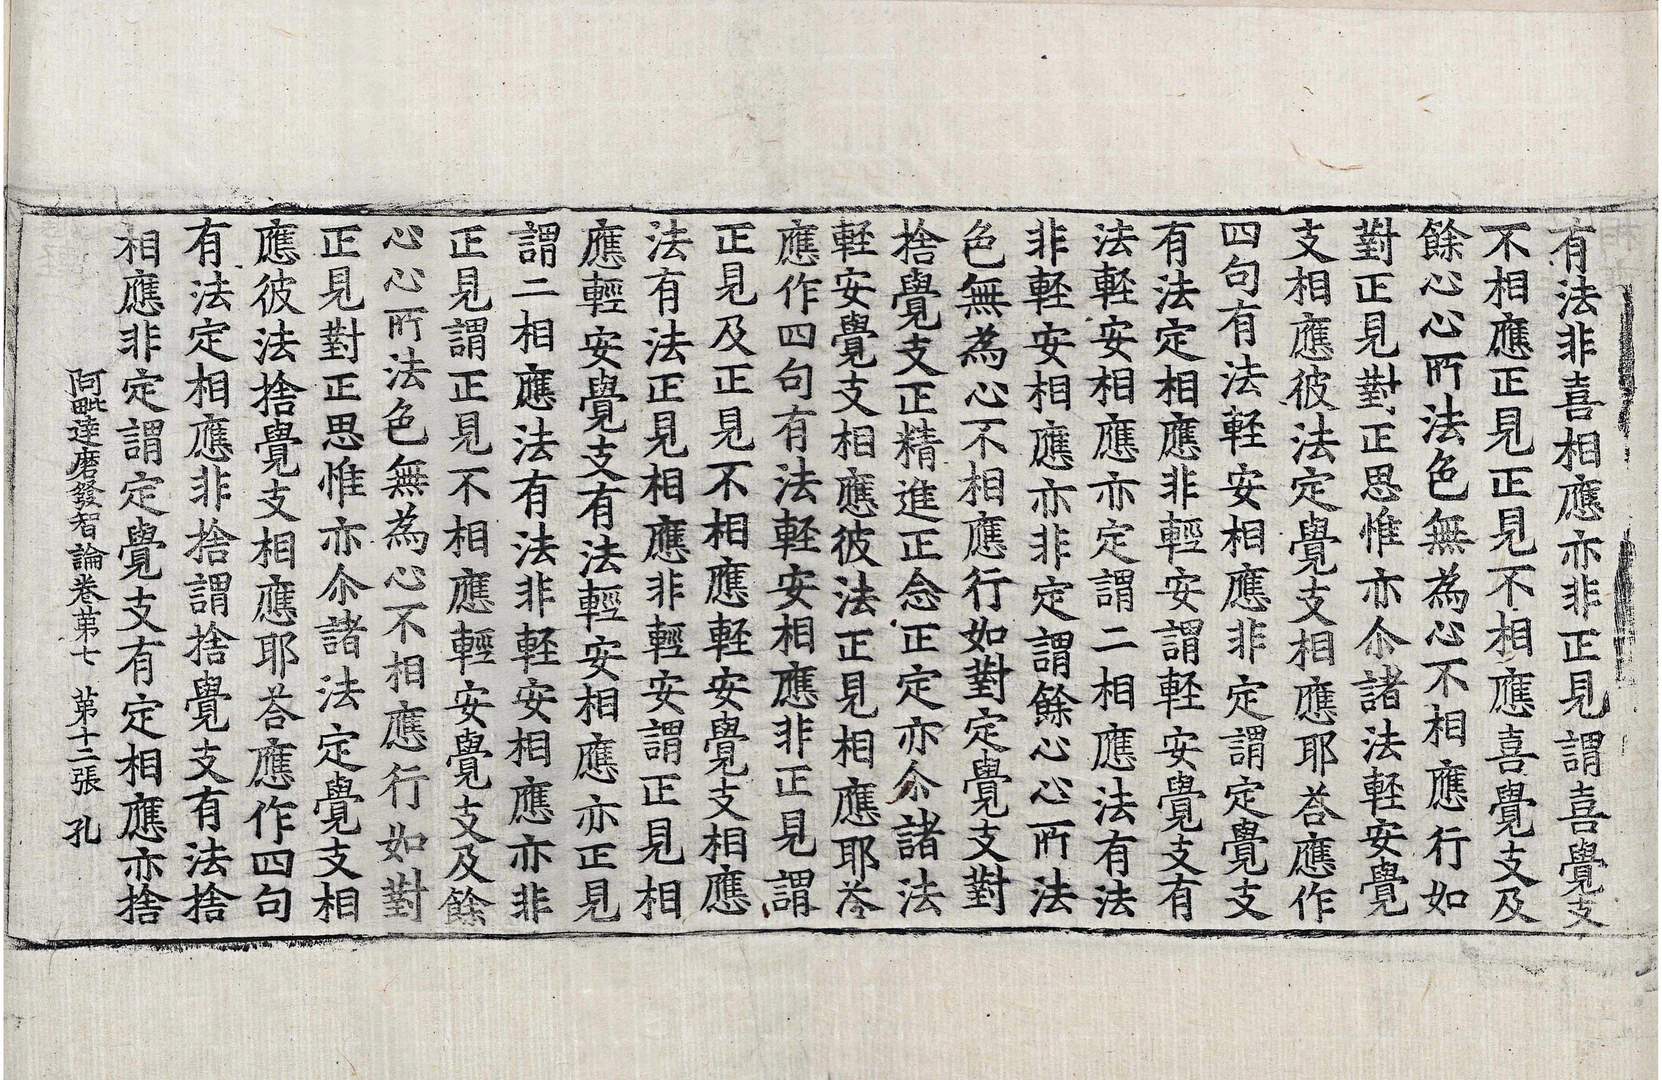 有法非喜相應亦非正見謂喜覺支
不相應正見正見不相應喜覺支及
餘心心所法色無為心不相應行如
對正見對正思惟亦尒諸法輕安覺
支相應彼法定覺支相應耶荅應作
四句有法輕安相應非定謂定覺支
有法定相應非輕安謂輕安覺支有
法輕安相應亦定謂二相應法有法
非輕安相應亦非定謂餘心心所法
色無為心不相應行如對定覺支對
捨覺支正精進正念正定亦尒諸法
輕安覺支相應彼法正見相應耶荅
應作四句有法輕安相應非正見謂
正見及正見不相應輕安覺支相應
法有法正見相應非輕安謂正見相
應輕安覺支有法輕安相應亦正見
謂二相應法有法非輕安相應亦非
正見謂正見不相應輕安覺支及餘
心心所法色無為心不相應行如對
正見對正思惟亦尒諸法定覺支相
應彼法捨覺支相應耶荅應作四句
有法定相應非捨謂捨覺支有法捨
相應非定謂定覺支有定相應亦捨
阿毗達磨發智論卷第七 第十二張 孔